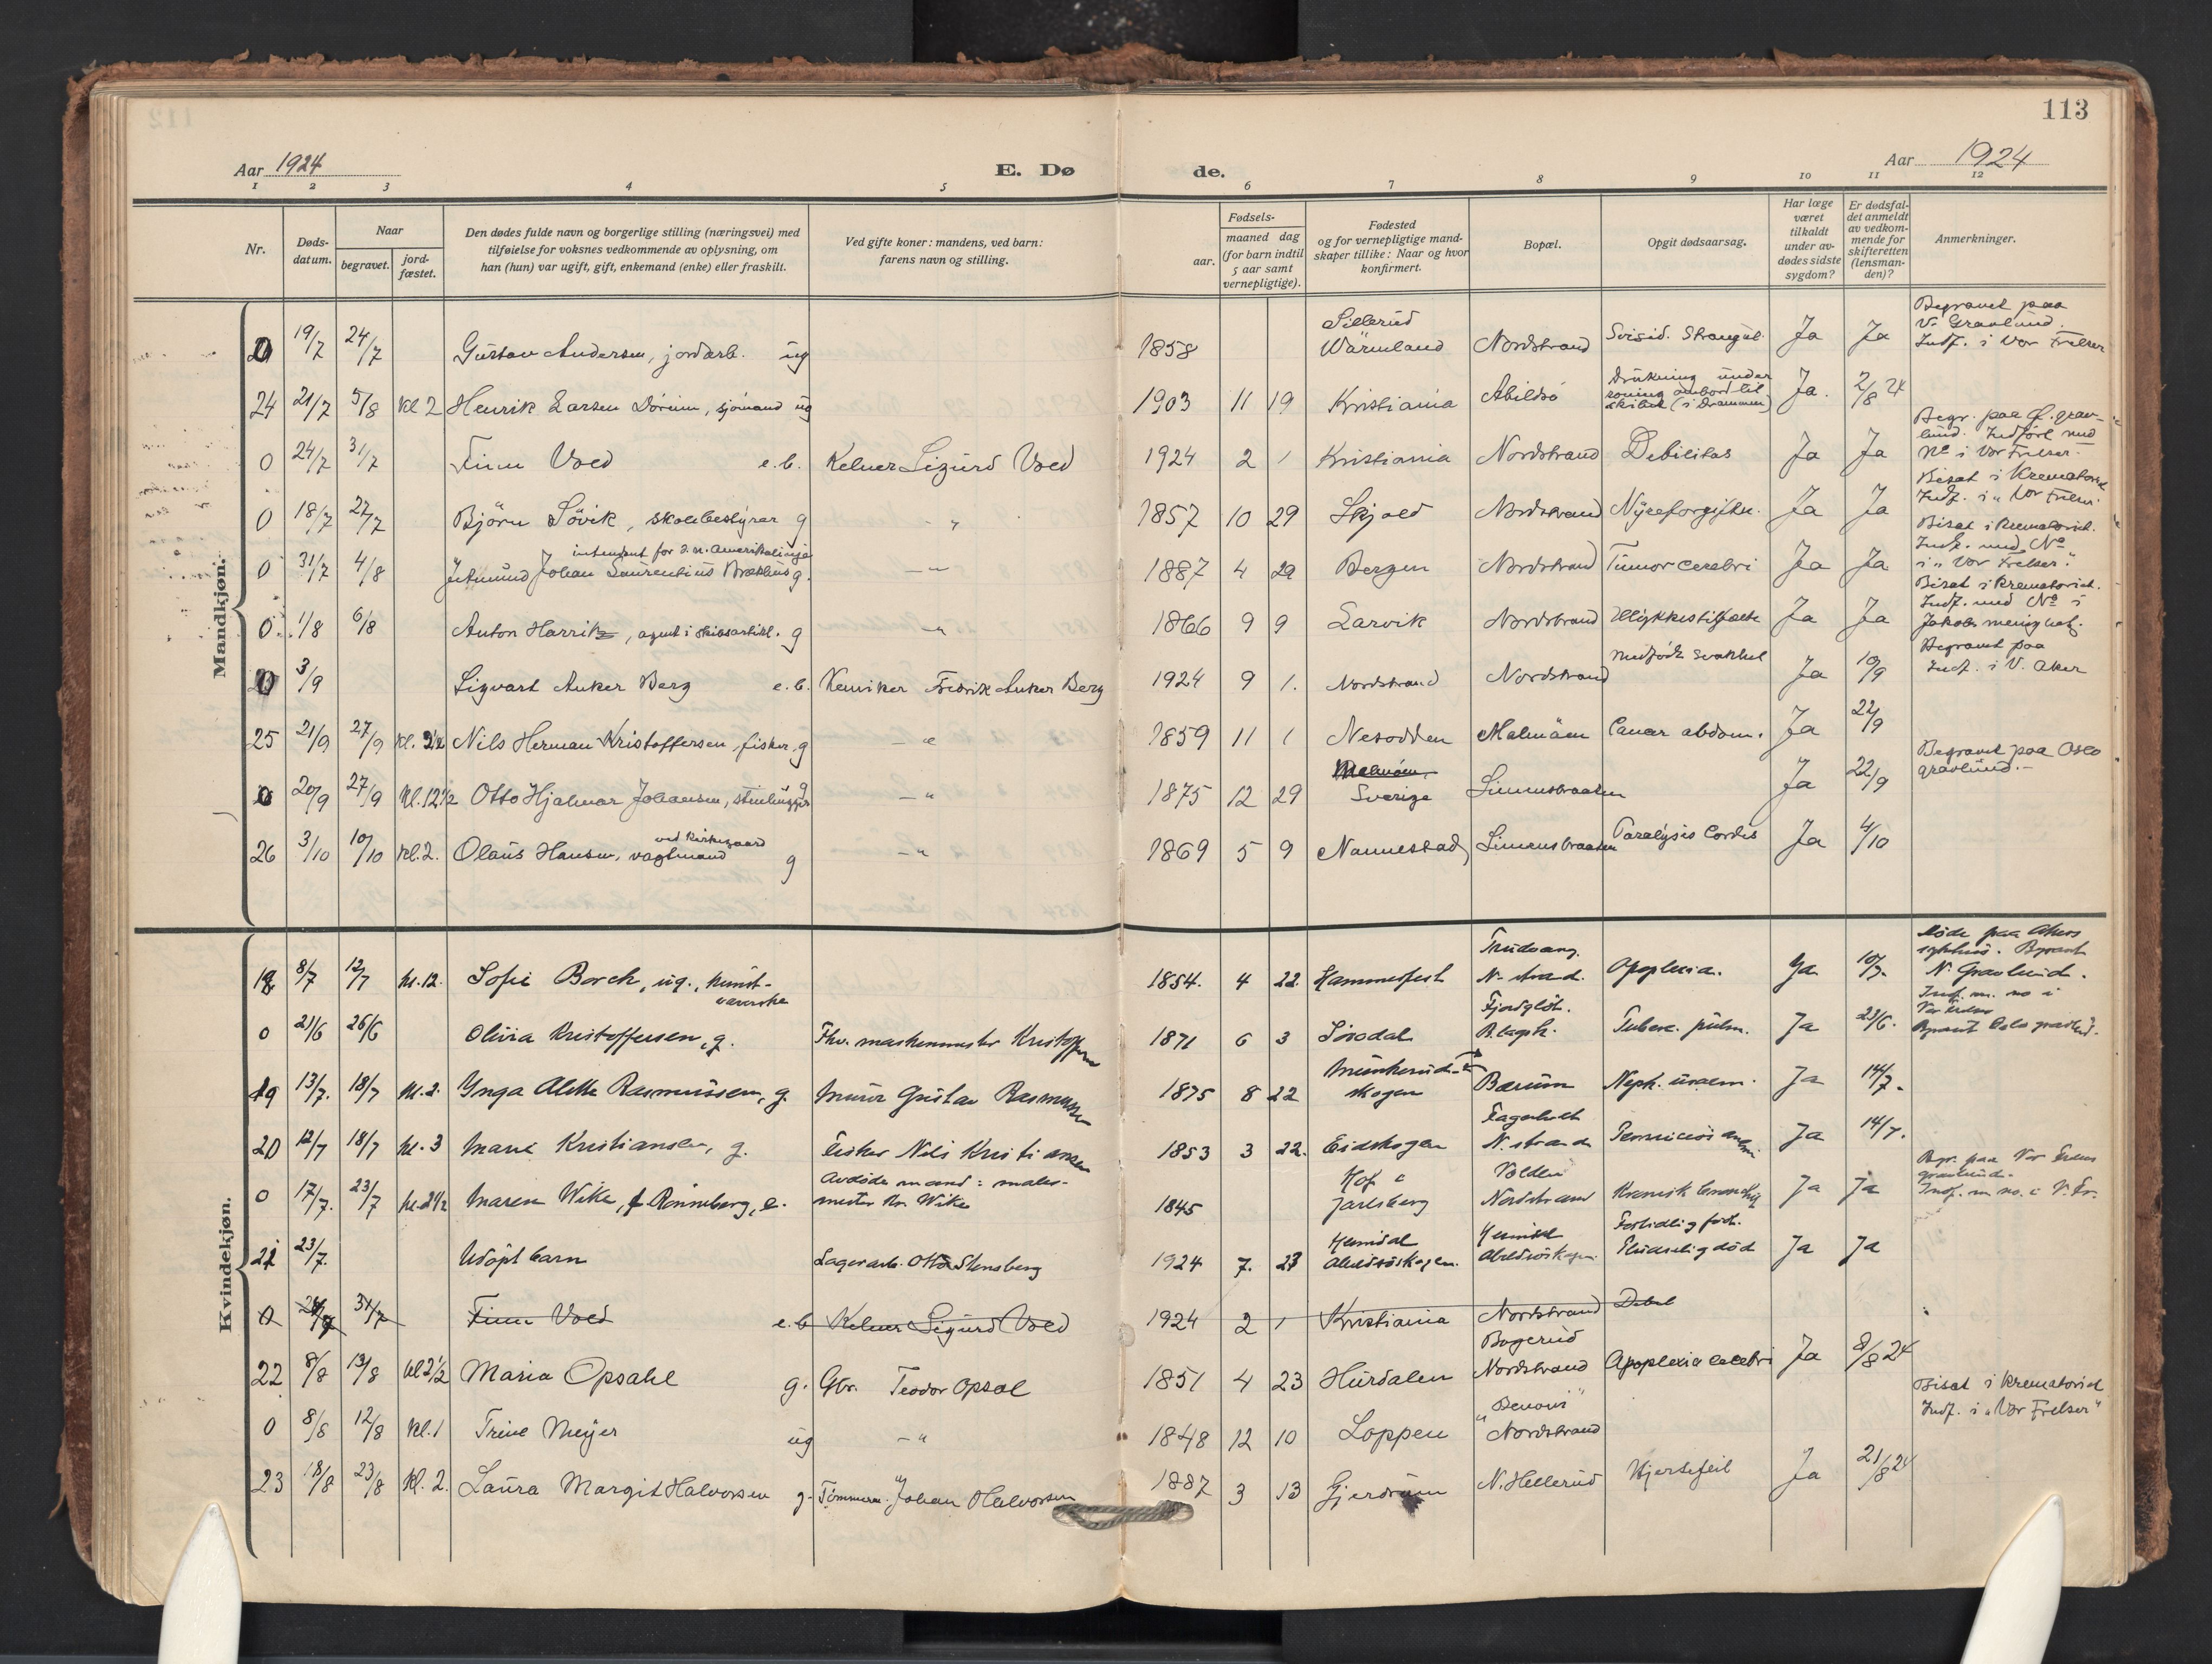 113
Aar 1924
E. Dø
de.
Aar 1924
1 2 3 4 5 6 7 8 9 10 11 12
Nr.
Døds-
datum.
Naar
begravet.
jord-
fæstet.
Den dødes fulde navn og borgerlige stilling (næringsvei) med
tilføielse for voksnes vedkommende av oplysning, om
han (hun) var ugift, gift, enkemand (enke) eller fraskilt.
Ved gifte koner: mandens, ved barn:
farens navn og stilling.
Fødsels-
aar.
maaned dag
(for barn indtil
5 aar samt
vernepligtige).
Fødested
og for vernepligtige mand-
skaper tillike: Naar og hvor
konfirmert.
Bopæl.
Opgit dødsaarsag.
Har læge
været
tilkaldt
under av-
dødes sidste
sygdom?
Er dødsfal-
det anmeldt
av vedkom-
mende for
skifteretten
(lensman-
den)?
Anmerkninger.
Mandkjøn.
0 19/7 24/7 Gustav Andersen, jordarb. ug 1858 Sillerud Wärmland Nordstrand Suisid. Strangul. Ja Ja Begravet paa V. Gravlund. Indf. i Vor Frelser
24 21/7 5/8 Kl 2 Henrik Larsen Dörum, sjömand ug 1903 11 19 Kristiania Abildsö Drukning under roning ombord til skibet (i Drammen) Ja. 2/8 24
0 24/7 31/7 Finn Voed e.b. Kelner Sigurd Voed 1924 2 1 Kristiania Nordstrand Debilitas Ja Ja Begr. paa Ø. grav- lund. Indført med No i Vor Frelser.
0 18/7 22/7 Björn Sövik, skolebestyrer g - " 1857 10 29 Skjold Nordstrand Nyreforgiftn. Ja Ja Bisat i Krematoriet Indf. i "Vor Frelser
0 31/7 4/8 intendent for d. n. Amerikalinje Johan Laurentius g. - " 1887 4 29 Bergen Nordstrand Tumor cerebri Ja Ja Bisat i Krematoriet. Indf. med No i "Vor Frelser".
0 1/8 6/8 Anton Harritz, agent i skibsartikl. g - " 1866 9 9 Larvik Nordstrand Ulykkestilfælde Ja Ja Bisat i Krematoriet. Indf. med No i Jakobs menighet.
0 3/9 Sigvart Anker Berg e.b. Kemiker Fredrik Anker Berg 1924 9 1. Nordstrand Nordstrand Medfödt svakhet Ja 10/9 Begravet paa Indf. i V. Aker
25 21/9 27/9 Kl. 2 1/2 Nils Herman Kristoffersen, fisker, g - " 1859 11 1 Nesodden Malmöen Cancer abdom. Ja 22/9
0 20/9 27/9 Kl. 12 1/2 Otto Hjalmar Johansen, stenhugger g - " 1875 12 29 Malmöen, Sverige Simensbraaten Ja 22/9 Begravet paa Oslo gravlund.-
26 3/10 10/10 Kl. 2. Olaus Hansen, vagtmand ved kirkegaard g - " 1869 5 9 Nannestad Simensbraaten Paralysis Cordis Ja 4/10
Kvindekjøn.
18 8/7 12/7 kl. 12. Sofie Borch, ug., kunst- væverske 1854. 4 22. Hammerfest N-strand. Apoplexia. Ja 10/7. Döde paa Akers sykehus. N. Gravlund.
0 21/6 26/6 Olivia Kristoffersen, g. Fhv. maskinmester Kristoffersen 1871 6 3 Tuberc. pulm. Ja 23/6. Indf. m. no i Vor Frelser Begravet Oslo gravlund.
19 13/7. 18/7 kl. 2. Ynga Alette Rasmussen, g. Murer Gustav Rasmussen 1875 8 22 Munkerud- skogen Bærum Neph. uræm. Ja 14/7.
20 12/7 18/7 kl. 3 Marie Kristiansen, g. Fisker Nils Kristiansen 1853 3 22. Eidskogen Fagerholt N. strand Perniciös anemi Ja 14/7.
0 17/7. 23/7 kl. 2 1/2 Maren Wike, f. Rönneberg, e. Avdöde mand: maler- mester Kr. Wike 1845 Hof i Jarlsberg Volden Nordstrand Kronisk bronchit Ja Ja Begr. paa Vor Frelsers gravlund.- Indf. m no. i V. Fr.
21 23/7. Udöpt barn Lagerarb. Otto Stensberg 1924 7. 23 Heimdal Abildsöskogen. Heimdal Abildsöskogen. For tidlig född. Pludselig död Ja Ja
0 24/7 31/7 Finn Voed e.b Kelner Sigurd Voed 1924 2 1 Kristiania Nordstrand Debil
22 8/8 13/8 kl 2 1/2 Maria Opsahl g. Gbr. Teodor Opsal 1851 4 23 Hurdalen Bogerud Nordstrand Apoplexia cerebri Ja 8/8 24
0 8/8 12/8 Kl. 1 Trine Meyer ug - " 1848 12 10 Loppen Nordstrand Bisat i Krematoriet Indf. i "Vor Frelser"
23 18/8 23/8 Kl. 2. Laura Margit Halvorsen g. Tömmerm. Johan Halvorsen 1887 3 13 Gjerdrum N. Hellerud Hjertefeil Ja 21/8 24